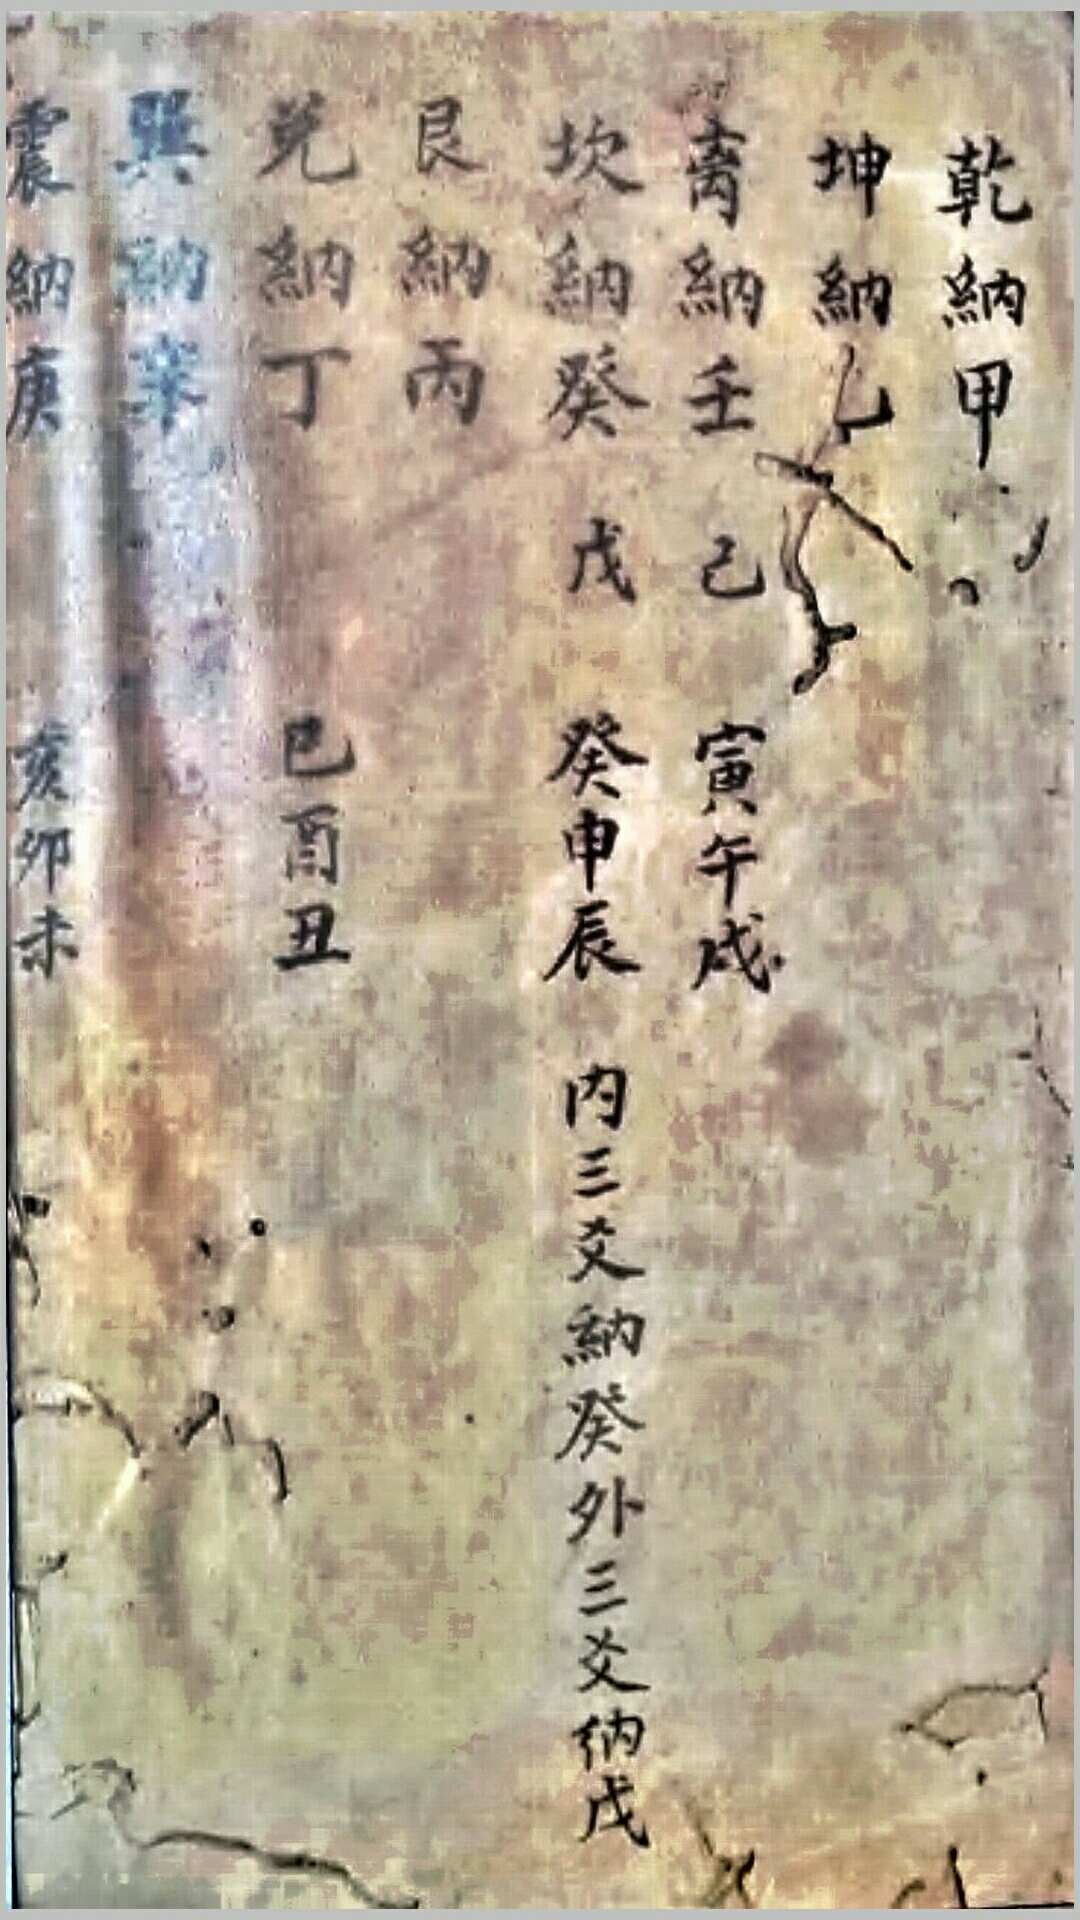 乾納甲
坤納乙
离納壬 己 寅午戌
坎納癸 戊 癸申辰 内三爻納癸外三爻纳戊
艮納丙
兌納丁 巳酉丑
巽納辛
震納庚 亥卯未